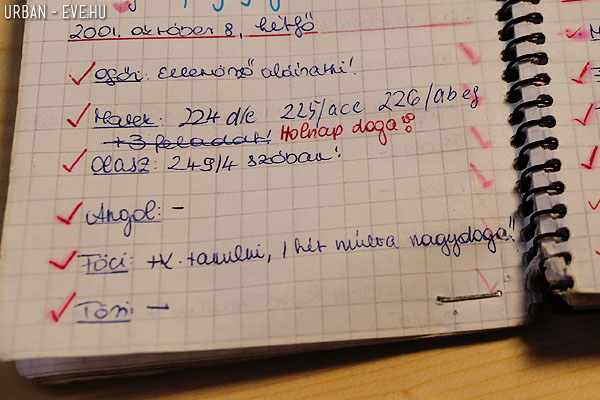 URBAN - EVE.HU
2001. október 8, hétfő
Ofőri: Ellenőrző aláíratni!
Matek: 224 d/e 225/ace 226/abeg
+3 feladat! Holnap doga!!
Olasz: 249/4 szóban!
Angol: -
Föci: tk. tanulni, 1 hét múlva nagydoga!!
Töri: -